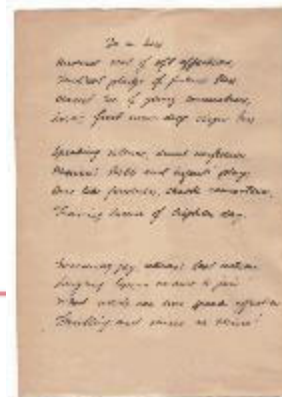 To a kiss
Humid seal of soft affections,
Tend'rest pledge of future bliss
Dearest tie of young connections,
Love's first snow-drop, virgin kiss
Speaking silence, dumb confession
Passion's birth and infants' play,
Dove-like fondness, chaste concession,
Glowing dawn of brighter day.
Sorrowing joy, adieu's last action
Ling'ring lips no more to join
What words can ever speak affection
Thrilling and sincere as thine!